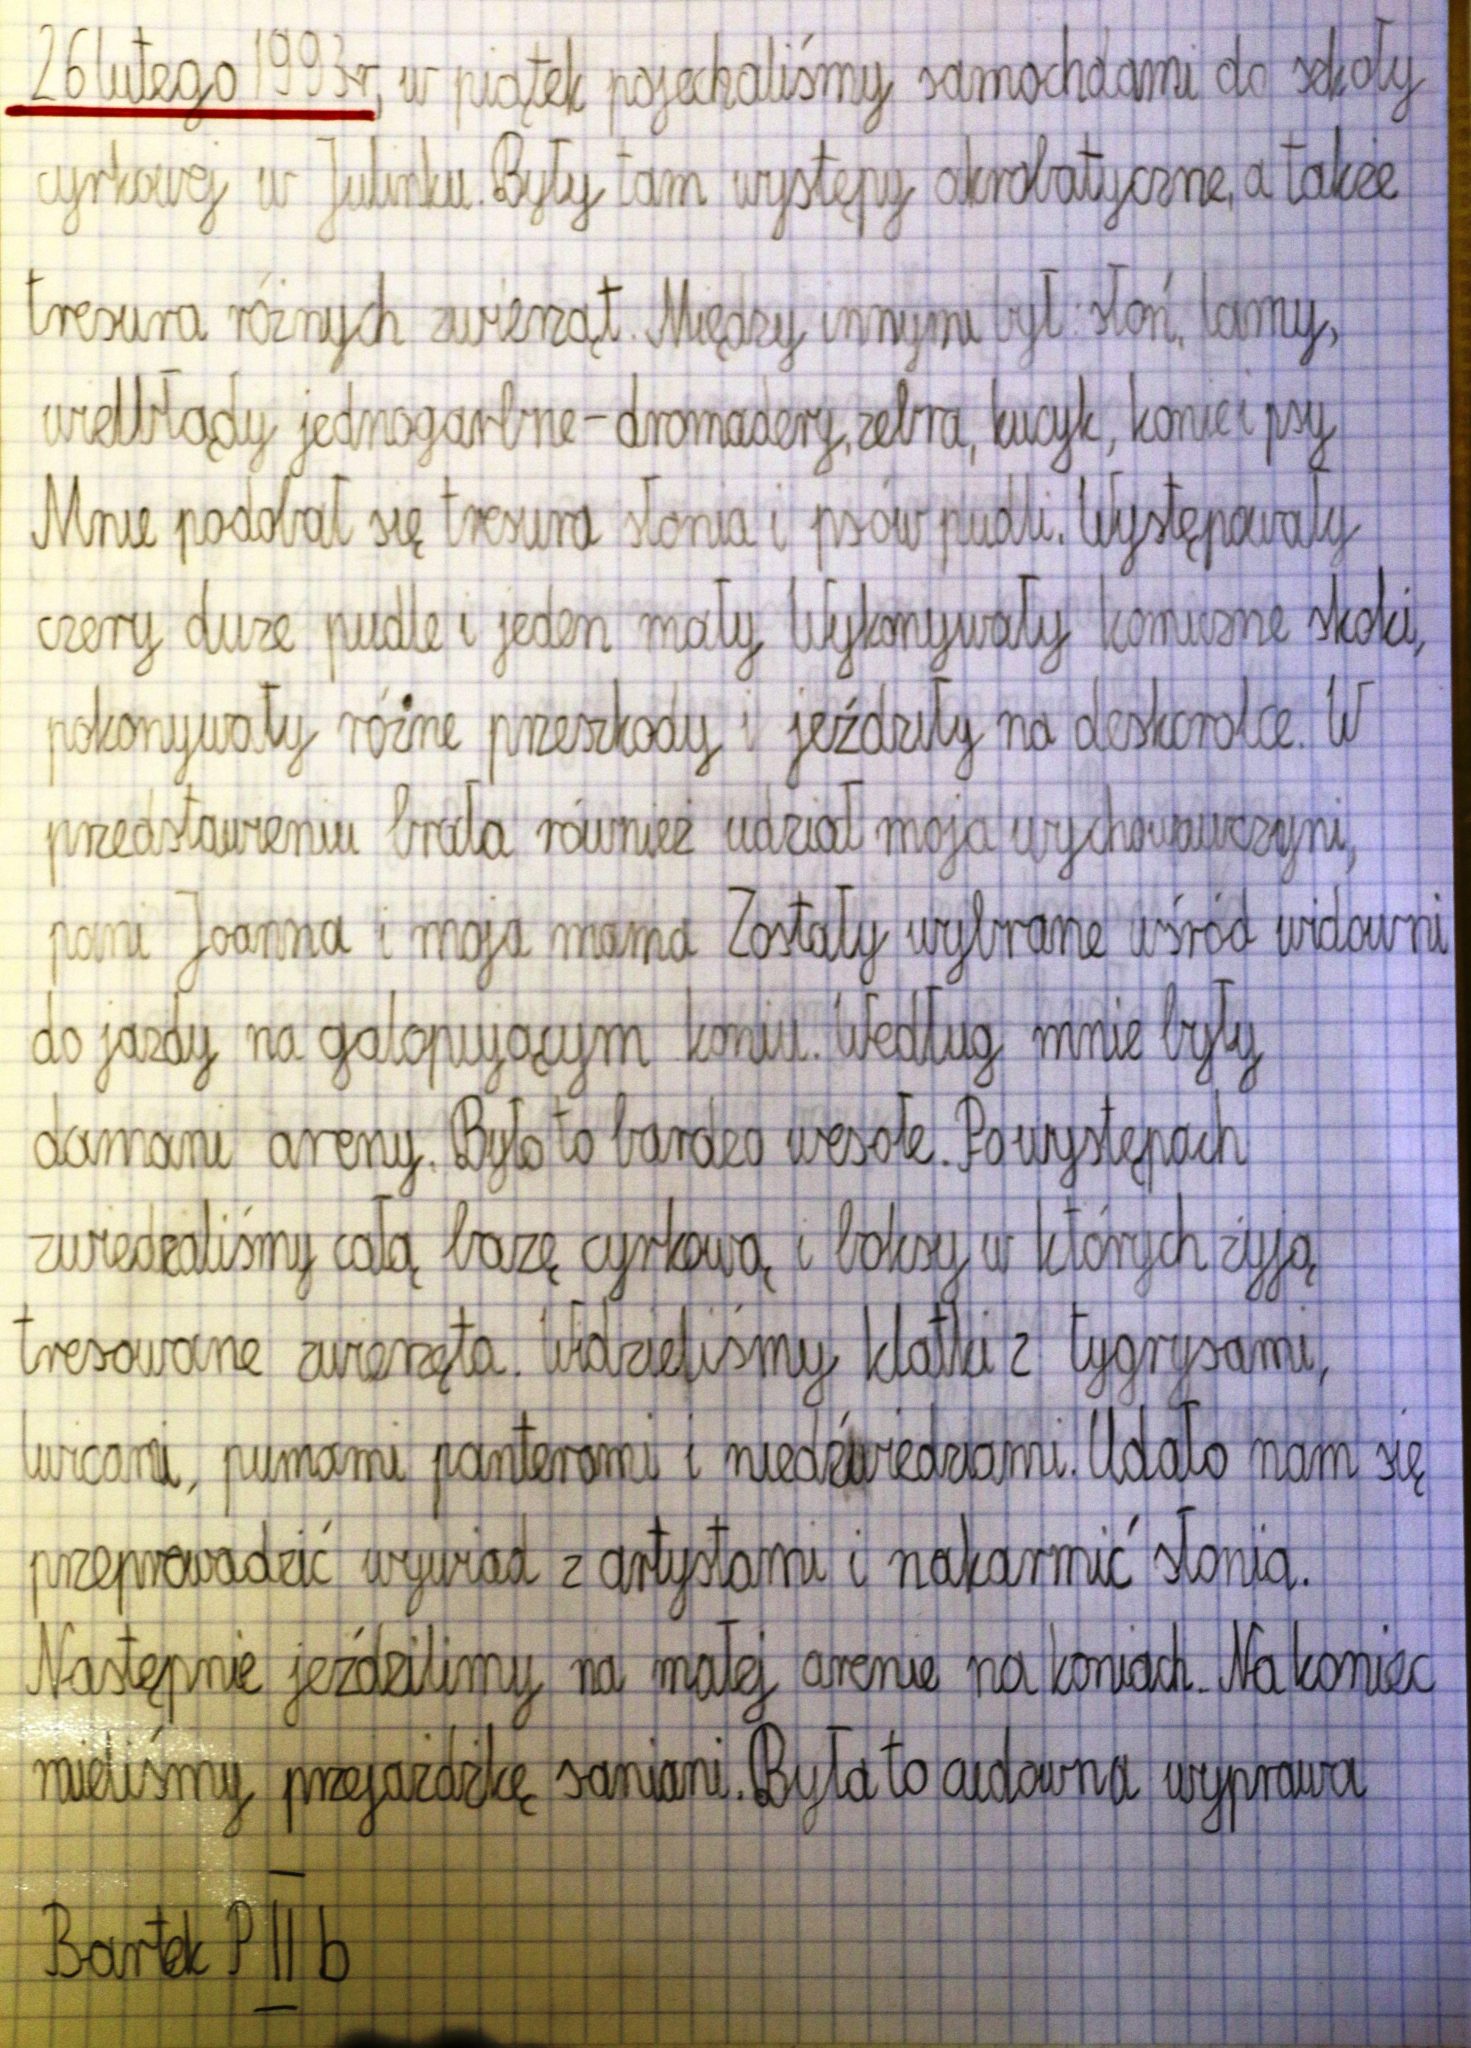 26 lutego 1993r, w piątek pojechaliśmy samochdami do szkoły
cyrkowej w Julinku. Były tam występy akrobatyczne, a także
tresura różnych zwierząt. Między innymi był: słoń, lamy,
wielbłądy jednogarbne - dromadery, zebra, kucyk, konie i psy
Mnie podobał się tresura słonia i psów pudli. Występowały
cztery duże pudle i jeden mały Wykonywały komiczne skoki,
pokonywały różne przeszkody i jeździły na deskorolce. W
przedstawieniu brała również udział moja wychowawczyni,
pani Joanna i moja mama Zostały wybrane wśród widowni
do jazdy na galopującym koniu. Według mnie były
damami areny. Było to bardzo wesołe. Po występach
zwiedzaliśmy całą bazę cyrkową i boksy w których żyją
tresowane zwierzęta. Widzieliśmy klatki z tygrysami,
lwicami, pumami panterami i niedźwiedziami. Udało nam się
przeprowadzić wywiad z artystami i nakarmić słonia.
Następnie jeździlimy na małej arenie na koniach. Na koniec
mieliśmy przejażdżkę saniami. Była to cudowna wyprawa
Bartek P II b